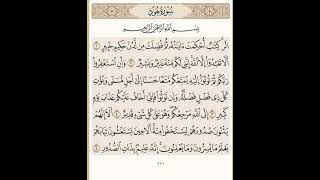 سُورَةُ هُودٍ
بِسْمِ ٱللَّهِ ٱلرَّحْمَٰنِ ٱلرَّحِيمِ
الٓر كِتَٰبٌ أُحْكِمَتْ ءَايَٰتُهُۥ ثُمَّ فُصِّلَتْ مِن لَّدُنْ حَكِيمٍ خَبِيرٍ ١
أَلَّا تَعْبُدُوٓا۟ إِلَّا ٱللَّهَ إِنَّنِى لَكُم مِّنْهُ نَذِيرٌ وَبَشِيرٌ ٢ وَأَنِ ٱسْتَغْفِرُوا۟
رَبَّكُمْ ثُمَّ تُوبُوٓا۟ إِلَيْهِ يُمَتِّعْكُم مَّتَٰعًا حَسَنًا إِلَىٰٓ أَجَلٍ مُّسَمًّى وَيُؤْتِ
كُلَّ ذِى فَضْلٍ فَضْلَهُۥ وَإِن تَوَلَّوْا۟ فَإِنِّىٓ أَخَافُ عَلَيْكُمْ عَذَابَ يَوْمٍ
كَبِيرٍ ٣ إِلَى ٱللَّهِ مَرْجِعُكُمْ وَهُوَ عَلَىٰ كُلِّ شَىْءٍ قَدِيرٌ ٤ أَلَآ إِنَّهُمْ
يَثْنُونَ صُدُورَهُمْ لِيَسْتَخْفُوا۟ مِنْهُ أَلَا حِينَ يَسْتَغْشُونَ ثِيَابَهُمْ
يَعْلَمُ مَا يُسِرُّونَ وَمَا يُعْلِنُونَ إِنَّهُۥ عَلِيمٌۢ بِذَاتِ ٱلصُّدُورِ ٥
٢٢١